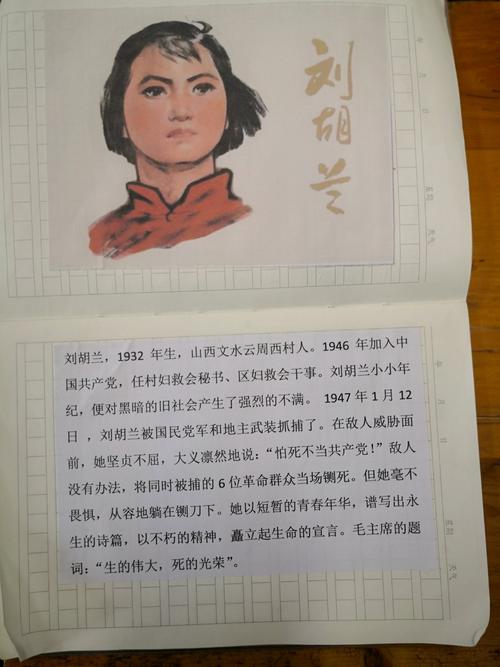 刘胡兰
年 月 日
星期
天气
刘胡兰，1932 年生，山西文水云周西村人。1946 年加入中
国共产党，任村妇救会秘书、区妇救会干事。刘胡兰小小年
纪，便对黑暗的旧社会产生了强烈的不满。 1947 年 1 月 12
日 ，刘胡兰被国民党军和地主武装抓捕了。在敌人威胁面
前，她坚贞不屈，大义凛然地说：“怕死不当共产党！”敌人
没有办法，将同时被捕的 6 位革命群众当场铡死。但她毫不
畏惧，从容地躺在铡刀下。她以短暂的青春年华，谱写出永
生的诗篇，以不朽的精神，矗立起生命的宣言。毛主席的题
词：“生的伟大，死的光荣”。
年 月 日
星期
天气